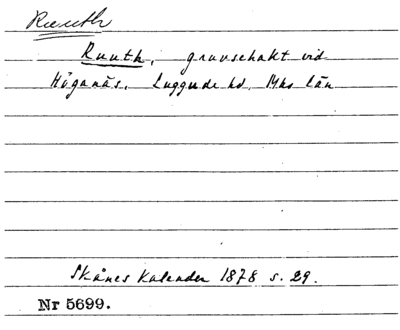 Ruuth
Ruuth, gruvschakt vid
Höganäs, Luggude hd. Mhs län
Skånes Kalender 1878 s. 29.
Nr 5699.